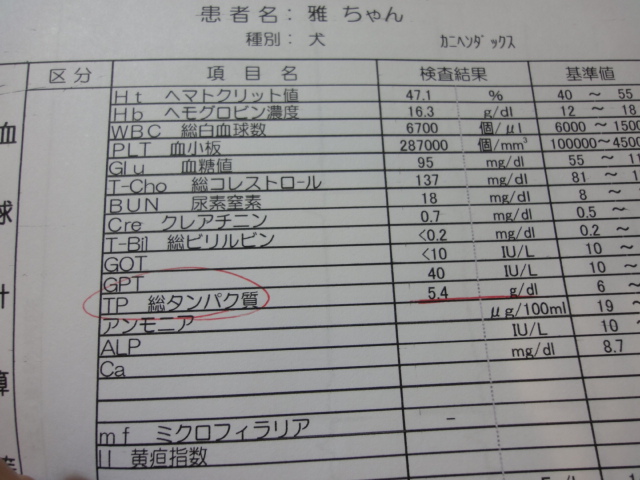 患者名: 雅 ちゃん
種別: 犬 ｶﾆﾍﾝﾀﾞｯｸｽ
区分 項目名 検査結果 基準値
Ht ヘマトクリット値 47.1 % 40 ～ 55
Hb ヘモグロビン濃度 16.3 g/dl 12 ～ 18
WBC 総白血球数 6700 個/μl 6000 ～ 1500
PLT 血小板 287000 個/mm³ 100000～4500
Glu 血糖値 95 mg/dl 55 ～ 11
T-Cho 総コレストロール 137 mg/dl 81 ～ 1
BUN 尿素窒素 18 mg/dl 8 ～
Cre クレアチニン 0.7 mg/dl 0.5 ～
T-Bil 総ビリルビン <0.2 mg/dl 0.2 ～
GOT <10 IU/L 10 ～
GPT 40 IU/L 10 ～
TP 総タンパク質 5.4 g/dl 6 ～
アンモニア μg/100ml 19 ～
ALP IU/L 10 ～
Ca mg/dl 8.7
mf ミクロフィラリア －
II 黄疸指数
血
球
計
算